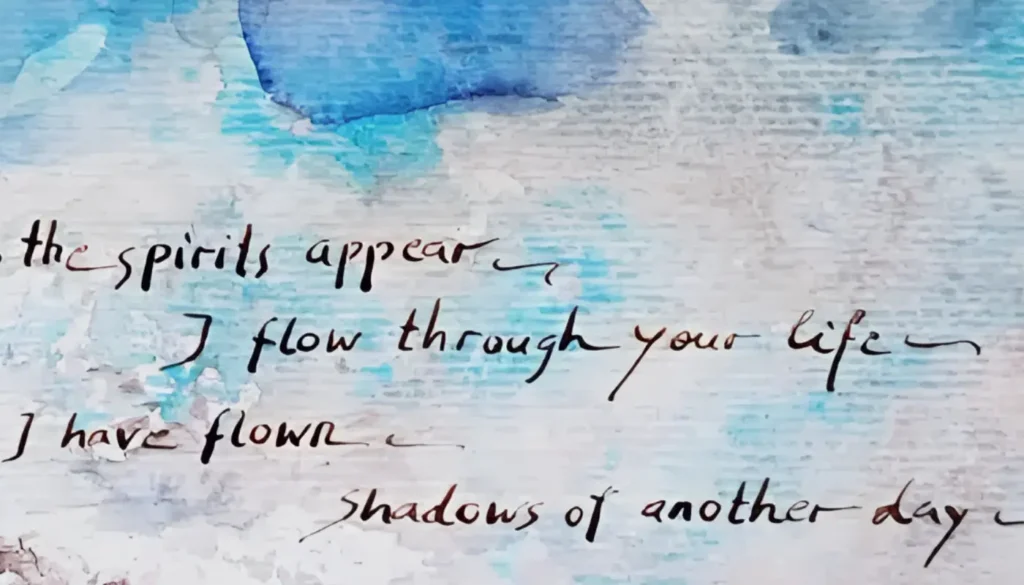 the spirits appear
I flow through your life
I have flown
shadows of another day